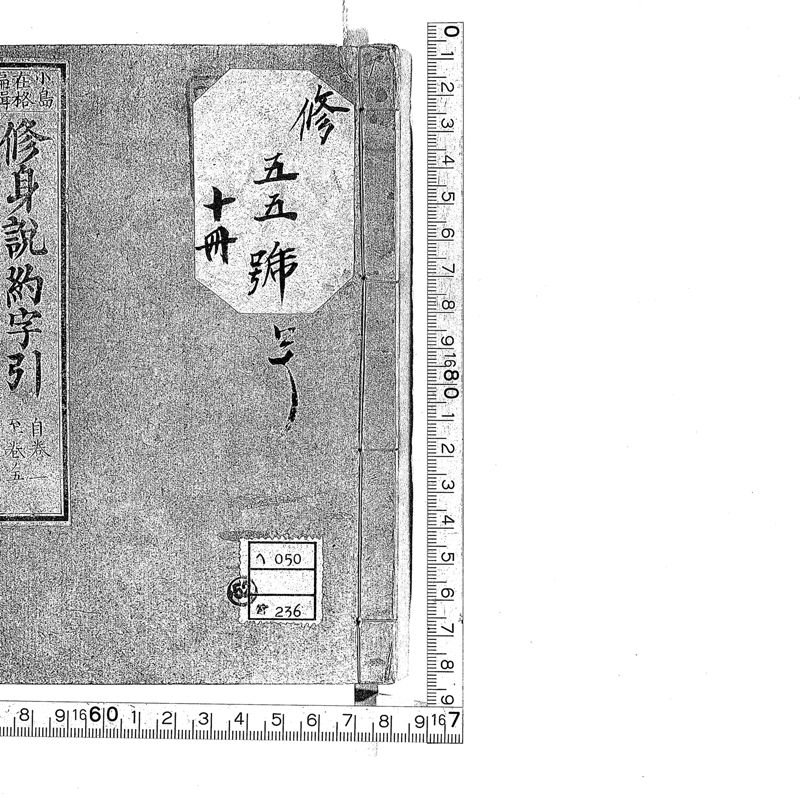 修
五五號
十冊
小島
在格
編輯
修身說約字引
自卷一
至卷五
ヘ 050
236
52
0 1 2 3 4 5 6 7 8 9 16 80 1 2 3 4 5 6 7 8 9
8 9 16 60 1 2 3 4 5 6 7 8 9 16 7